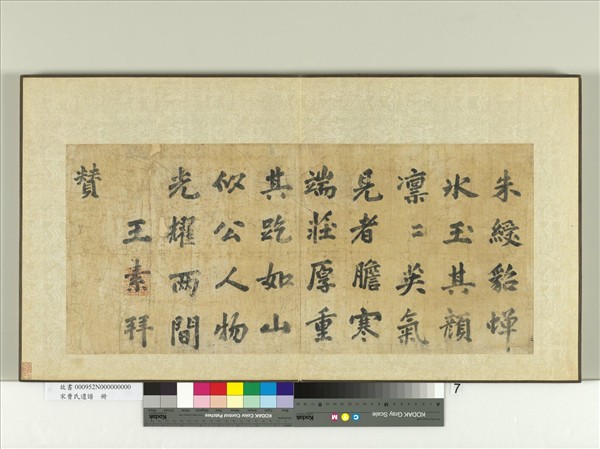 朱綬貂蟬
氷玉其顔
凛〻英氣
見者膽寒
端莊厚重
其䟕如山
似公人物
光耀兩間
王素拜
賛
故書 000952N000000000
宋曹氏遺譜 冊
Kodak
KODAK Color Control Patches
C
M
KODAK Gray Scale
7